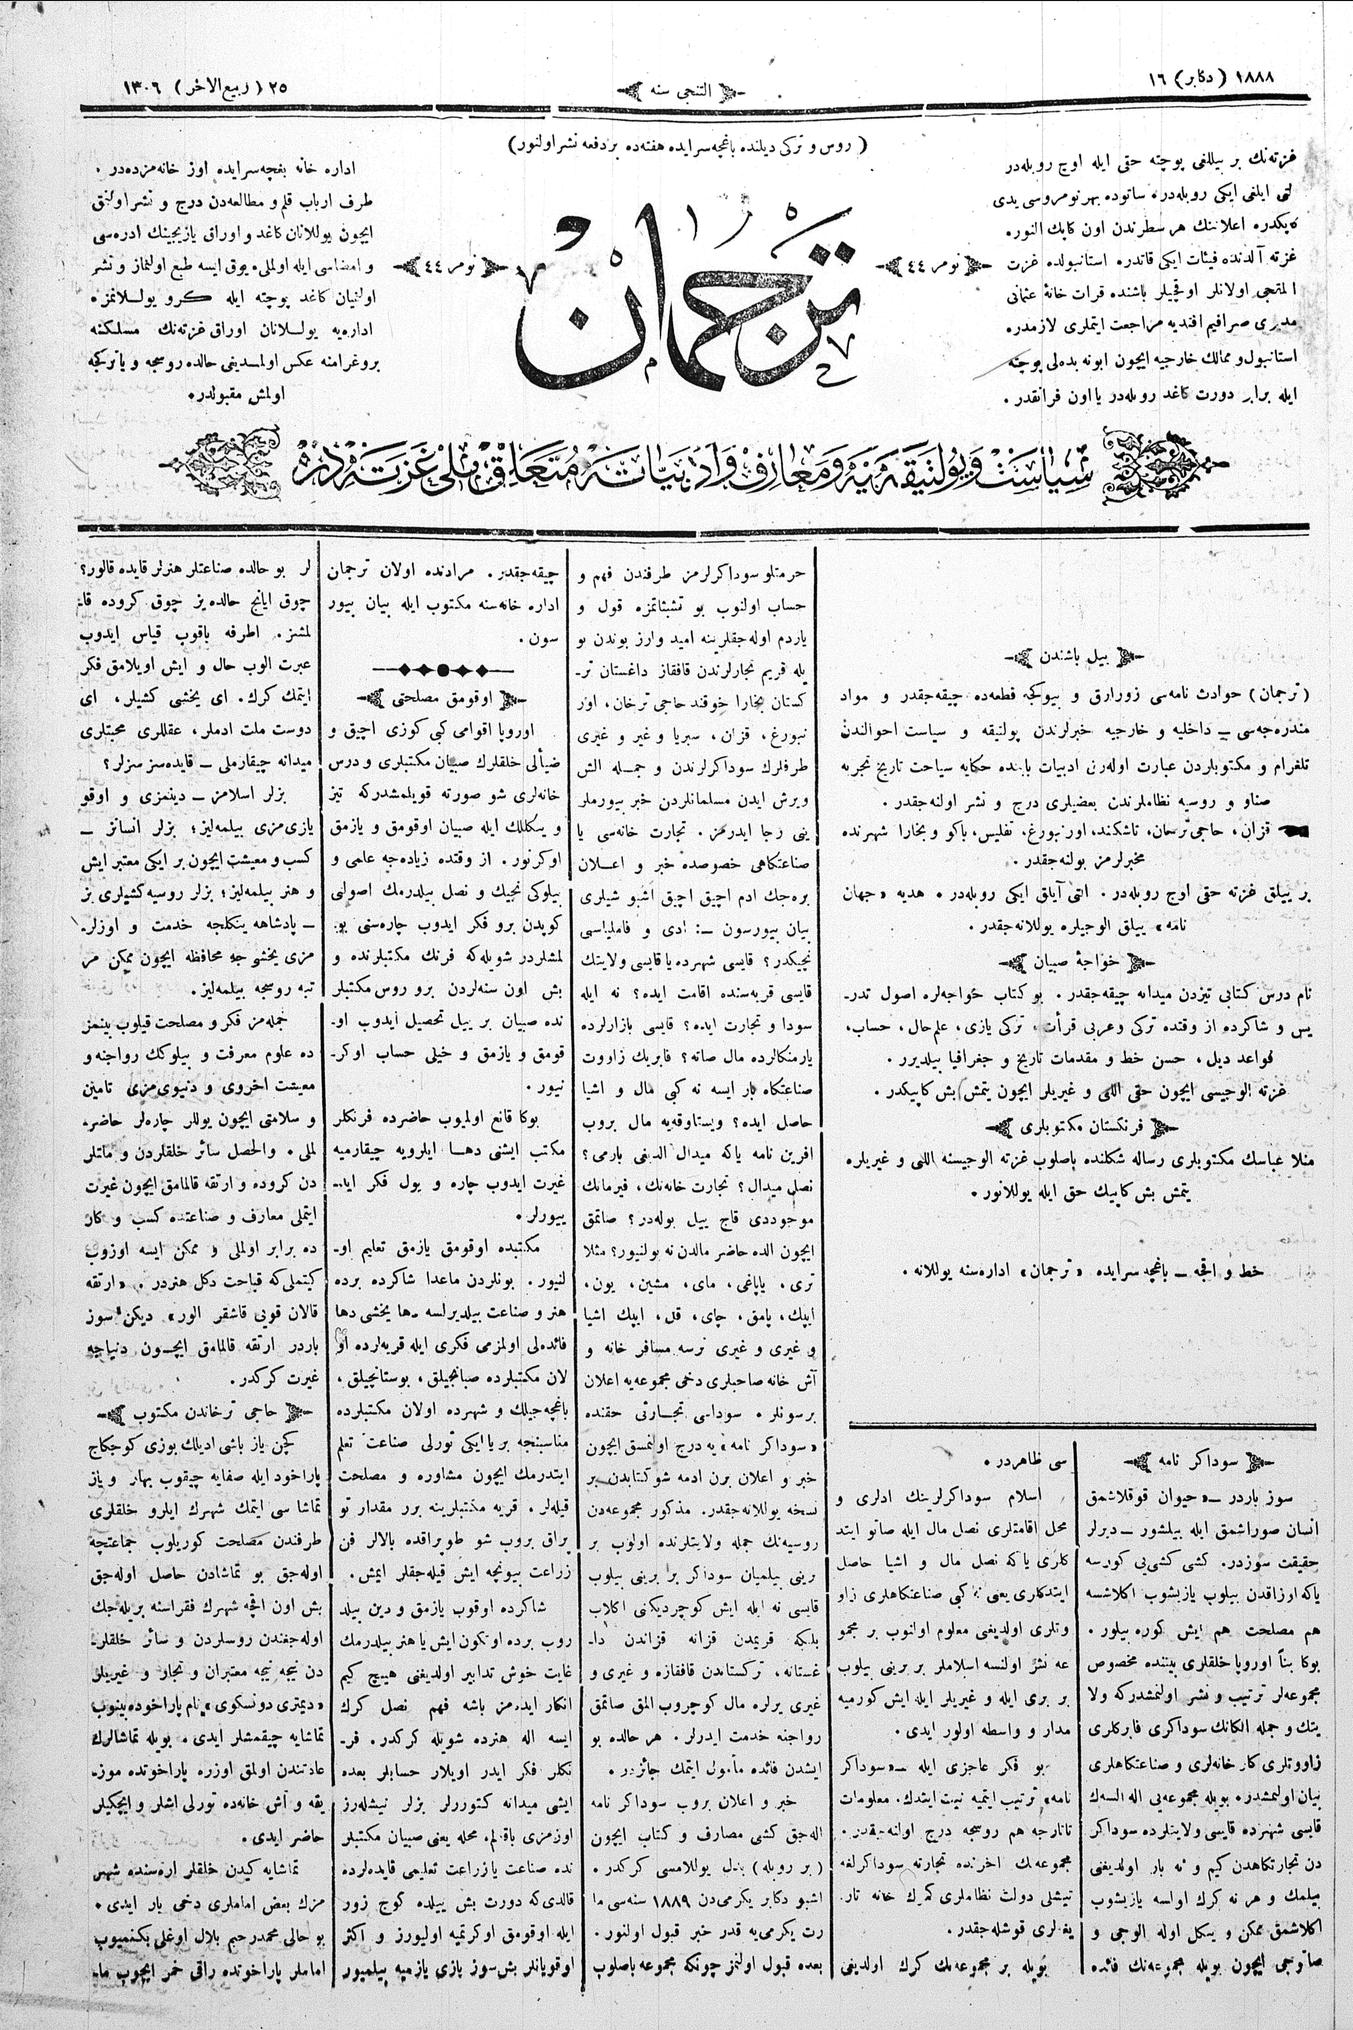 ١٨٨٨ (دكابر) ١٦
التنجى سنه
٢٥ (ربيع الاخر) ١٣٠٦
(روس و تركى ديلنده باغچه سرايده هفته ده بر دفعه نشر اولنور)
غزته نك بر ييللغى پوچته حقى ايله اوچ روبله در
لتى ايلغى ايكى روبله در. ساتوده بهر نومروسى يدى
كاپكدر. اعلاننك هر سطرندن اون كاپك النور.
غزته آلدنده فيئات ايكى قاتدر. استانبولده غزت
المقجى اولانلر اوقچيلر باشنده قرات خانۀ عثمانى
مديرى صرافيم افنديه مراجعت ايتملرى لازمدر.
استانبول و ممالك خارجيه ايچون ابونه بدلى پوچته
ايله برابر دورت كاغد روبله در يا اون فرانقدر.
نومر ٤٤
ترجمان
نومر ٤٤
اداره خانه بغچه سرايده اوز خانه مزده در.
طرف ارباب قلم و مطالعه دن درج و نشر اولنمق
ايچون يوللانان كاغد و اوراق يازيجينك ادرسى
و امضاسى ايله اولملى. يوق ايسه طبع اولنماز و نشر
اولنيان كاغد پوچته ايله كرو يوللانمزه
اداره يه يوللانان اوراق غزته نك مسلكنه
پروغرامنه عكس اولمديغى حالده روسجه و يا تركجه
اولمش مقبولدر.
سياست و پولتيقه يه و معارف و ادبيات ه متعلق ملى غزته در
ييل باشندن
(ترجمان) حوادث نامه سى زورارق و بيوكچه قطعه ده چيقه جقدر و مواد
مندره جه سى ــ داخليه و خارجيه خبرلرندن پولتيقه و سياست احوالندن
تلغرام و مكتوبلردن عبارت اوله رق ادبيات بابنده حكايه سياحت تاريخ تجربه
صناو و روسيه نظاملرندن بعضيلرى درج و نشر اولنه جقدر.
قزان، حاجى ترخان، تاشكند، اورنبورغ، تفليس، باكو و بخارا شهرنده
مخبرلرمز بولنه جقدر.
بر ييللق غزته حقى اوچ روبله در. التى آيلق ايكى روبله در. هديه «جهان
نامه» ييللق الوجيلره يوللانه جقدر.
خواجۀ صبيان
نام درس كتابى تيزدن ميدانه چيقه جقدر. بو كتاب خواجه لره اصول تدر-
يس و شاكرده از وقتده تركى و عربى قرأت، تركى يازى، علم حال، حساب،
قواعد ديل، حسن خط و مقدمات تاريخ و جغرافيا بيلديرر.
غزته الوجيسى ايچون حقى اللى و غيريلر ايچون يتمش بش كاپيكدر.
فرنكستان مكتوبلرى
منلا عباسك مكتوبلرى رساله شكلنده باصلوب غزته الوجيسنه اللى و غيريلره
يتمش بش كاپيك حق ايله يوللانور.
خط و اقچه ــ باغچه سرايده «ترجمان» اداره سنه يوللانه.
سوداكر نامه
سوز باردر ــ «حيوان قوقلاشمق
انسان صوراشمق ايله بيلشور ــ ديرلر
حقيقت سوزدر. كشى كشى يى كورسه
ياكه اوزاقدن بيلوب يازيشوب اكلاشسه
هم مصلحت هم ايش كوره بيلور.
بوكا بناً اوروپا خلقلرى بيننده مخصوص
مجموعه لر ترتيب و نشر اولنمشدركه ولا
يتك و جمله الكانك سوداكرى فابركلرى
زاووتلرى كار خانه لرى و صناعتكاهلرى
بيان اولنمشدر. بويله مجموعه يى اله السه ك
قايسى شهرده قايسى ولايتلرده سوداكر
دن تجارتكاهدن كيم و نه بار اولديغى
بيلمك و هر نه كرك اولسه يازيشوب
اكلاشمق ممكن و يكل اوله الوجى و
صاتوجى ايچون بويله مجموعه نك فائده
سى ظاهردر.
اسلام سوداكرلرينك ادلرى و
محل اقامتلرى نصل مال ايله صاتو ايتد
كلرى ياكه نصل مال و اشيا حاصل
ايتدكلرى يعنى نه كبى صناعتكاهلرى زاو
وتلرى اولديغى معلوم اولنوب بر مجمو
عه نشر اولنسه اسلاملر بر برينى بيلوب
بر برى ايله و غيريلر ايله ايش كورميه
مدار و واسطه اولور ايدى.
بو فكر عاجزى ايله ــ «سوداكر
نامه» ترتيب ايتميه نيت ايتدك. معلومات
تاتارجه هم روسجه درج اولنه جقدر.
مجموعه نك اخرنده تجارته سوداكرلغه
تيشلى دولت نظاملرى كمرك خانه تار
يفه لرى قوشله جقدر.
بويله بر مجموعه نك كرك اولديغى
حرمتلو سوداكرلرمز طرفندن فهم و
حساب اولنوب بو تشبثاتمزه قول و
ياردم اوله جقلرينه اميد وارز بوندن بو
يله قريم تجارلرندن قافقاز داغستان تر-
كستان بخارا خوقند حاجى ترخان، اور
نبورغ، قزان، سبريا و غير و غيرى
طرفلرك سوداكرلرندن و جمله الش
ويرش ايدن مسلمانلردن خبر بيورملر
ينى رجا ايدرمز. تجارت خانه سى يا
صناعتكاهى خصوصده خبر و اعلان
بره جك ادم اچيق اچيق اشبو شيلرى
بيان بيورسون ــ: ادى و فاملياسى
نجيكدر؟ قايسى شهرده يا قايسى ولايتك
قايسى قريه سنده اقامت ايده؟ نه ايله
سودا و تجارت ايده؟ قايسى بازارلرده
يارمنكالرده مال صاته؟ فابريك زاووت
صناعتكاه بار ايسه نه كبى مال و اشيا
حاصل ايده؟ ويستاوقه يه مال بروب
افرين نامه ياكه ميدال الديغى بارمى؟
نصل ميدال؟ تجارت خانه نك، فيرمانك
موجوددى قاچ ييل بوله در؟ صاتمق
ايچون الده حاضر مالدن نه بولنيور؟ مثلا
ترى، ياپاغى، ماى، مشين، يون،
ايپك، پامق، چاى، قل، ايپك اشيا
و غيرى و غيرى نرسه مسافر خانه و
آش خانه صاحبلرى دخى مجموعه يه اعلان
برسونلر. سوداسى تجارتى حقنده
«سوداكر نامه» يه درج اولنمسق ايچون
خبر و اعلان برن ادمه شو كتابدن بر
نسخه يوللانه جقدر. مذكور مجموعه دن
روسيه نك جمله ولايتلرنده اولوب بر
برينى بيلميان سوداكر بر برينى بيلوب
قايسى نه ايله ايش كوچرديكنى اكلاب
بلكه قريمدن قزانه قزاندن دا-
غستانه، تركستاندن قافقازه و غيرى و
غيرى يرلره مال كوچروب المق صاتمق
رواجنه خدمت ايدرلر. هر حالده بو
ايشدن فائده مأمول ايتمك جائزدر.
خبر و اعلان بروب سوداكر نامه
اله جق كشى مصارف و كتاب ايچون
(بر روبله) بدل يوللامسى كركدر.
اشبو دكابر يكرمى دن ١٨٨٩ سنه سى ما
رت يكرمى يه قدر خبر قبول اولنور.
بعده قبول اولنمز چونكه مجموعه باصلوب
چيقه جقدر. مرادنده اولان ترجمان
اداره خانه سنه مكتوب ايله بيان بيور
سون.
اوقومق مصلحتى
اوروپا اقوامى كبى كوزى اچيق و
ضيألى خلقلرك صبيان مكتبلرى و درس
خانه لرى شو صورته قويلمشدركه تيز
و يكللك ايله صبيان اوقومق و يازمق
اوكرنور. از وقتده زياده جه علمى و
بيلوكى نجيك و نصل بيلدرمك اصولنى
كوبدن برو فكر ايدوب چاره سنى بو
لمشلردر شويله كه فرنك مكتبلرنده و
بش اون سنه لردن برو روس مكتبلر
نده صبيان بر ييل تحصيل ايدوب او-
قومق و يازمق و خيلى حساب اوكر-
نيور.
بوكا قانع اولميوب حاضرده فرنكلر
مكتب ايشنى دها ايلرويه چيقارميه
غيرت ايدوب چاره و يول فكر ايد-
ييورلر.
مكتبده اوقومق يازمق تعليم او-
لنيور. بونلردن ماعدا شاكرده برده
هنر و صناعت بيلديرلسه ها يخشى دها
فائده لى اولمزمى فكرى ايله قريه لرده او
لان مكتبلرده صبانجيلق، بوستانجيلق،
باغچه جيلك و شهرده اولان مكتبلرده
مناسبنجه بر يا ايكى تورلى صناعت تعلم
ايتدرمك ايچون مشاوره و مصلحت
قيله لر. قريه مكتبلرينه برر مقدار تو
پراق بروب شو طوپراقده بالالر فن
زراعت بيونچه ايش قيله جقلر ايمش.
شاكرده اوقوب يازمق و دين بيلد
روب برده اوتكون ايش يا هنر بيلدرمك
غايت خوش تدابير اولديغنى هيچ كيم
انكار ايدرمز باشه فهم نصل كرك
ايسه اله هنرده شويله كركدر. فر-
نكلر فكر ايدر اويلار حسابلر بعده
ايشى ميدانه كتوررلر بزلر نيشله رز
اوزمزى باقالم. محله يعنى صبيان مكتبلر
نده صناعت يا زراعت تعليمى قايده لرده
قالدى كه دورت بش ييلده كوچ زور
ايله اوقومق اوكرتميه اوليورز و اكثر
اوقويانلر بش سوز يازى يازميه بيلميور
لر بو حالده صناعتلر هنرلر قايده قالور؟
چوق ايانچ حالده يز چوق كروده قا-
لمشز. اطرفه باقوب قياس ايدوب
عبرت الوب حال و ايش اويلامق فكر
ايتمك كرك. اى يخشى كشيلر، اى
دوست ملت ادملر، عقللرى محبتلرى
ميدانه چيقارملى ــ قايده سز سزلر؟
بزلر اسلامز ــ دينمزى و اوقو
يازى مزى بيلمه ليز؛ بزلر انسانز ــ
كسب و معيشت ايچون بر ايكى معتبر ايش
و هنر بيلمه ليز؛ بزلر روسيه كشيلرى يز
ــ پادشاهه يتكلجه خدمت و اوزلر-
مزى يخشى جه محافظه ايچون ممكن مر
تبه روسجه بيلمه ليز.
جمله مز فكر و مصلحت قيلوب بينمز
ده علوم معرفت و بيلوكك رواجنه و
معيشت اخروى و دنيوى مزى تامين
و سلامتى ايچون يوللر چاره لر حاضر-
لملى. والحصل سائر خلقلردن و ملتلر
دن كروده و ارتقه قالمامق ايچون غيرت
ايتملى معارف و صناعتده كسب و كار
ده برابر اولملى و ممكن ايسه اوزوب
كيتملى كه قباحت دكل هنردر. «ارتقه
قالان قويى قاشقر الور» ديكن سوز
باردر ارتقه قالمامق ايچون دنياجه
غيرت كركدر.
حاجى ترخاندن مكتوب
كچن ياز باشى اديلك بوزى كوچكاچ
پاراخود ايله صفايه چيقوب بهار و ياز
تماشا سى ايتمك شهرك ايلرو خلقلرى
طرفندن مصلحت كوريلوب جماعتچه
اوله جق بو تماشادن حاصل اوله جق
بش اون اقچه شهرك فقراسنه بريله جك
اوله جغندن روسلردن و سائر خلقلر-
دن نيچه نيچه معتبران و تجار و غيريلر
«ديمترى دونسكوى» نام پاراخوده بينوب
تماشايه چيقمشلر ايدى. بويله تماشالرك
عادتندن اولمق اوزره پاراخوتده موز-
يقه و آش خانه ده تورلى اشلر و ايچكيلر
حاضر ايدى.
تماشايه كيدن خلقلر اره سنده شهر
مزك بعض اماملرى دخى بار ايدى.
بو حالى محمدرحيم بلال اوغلى بكنميوب
اماملر پاراخوتده راقى خمر ايچوب ما-